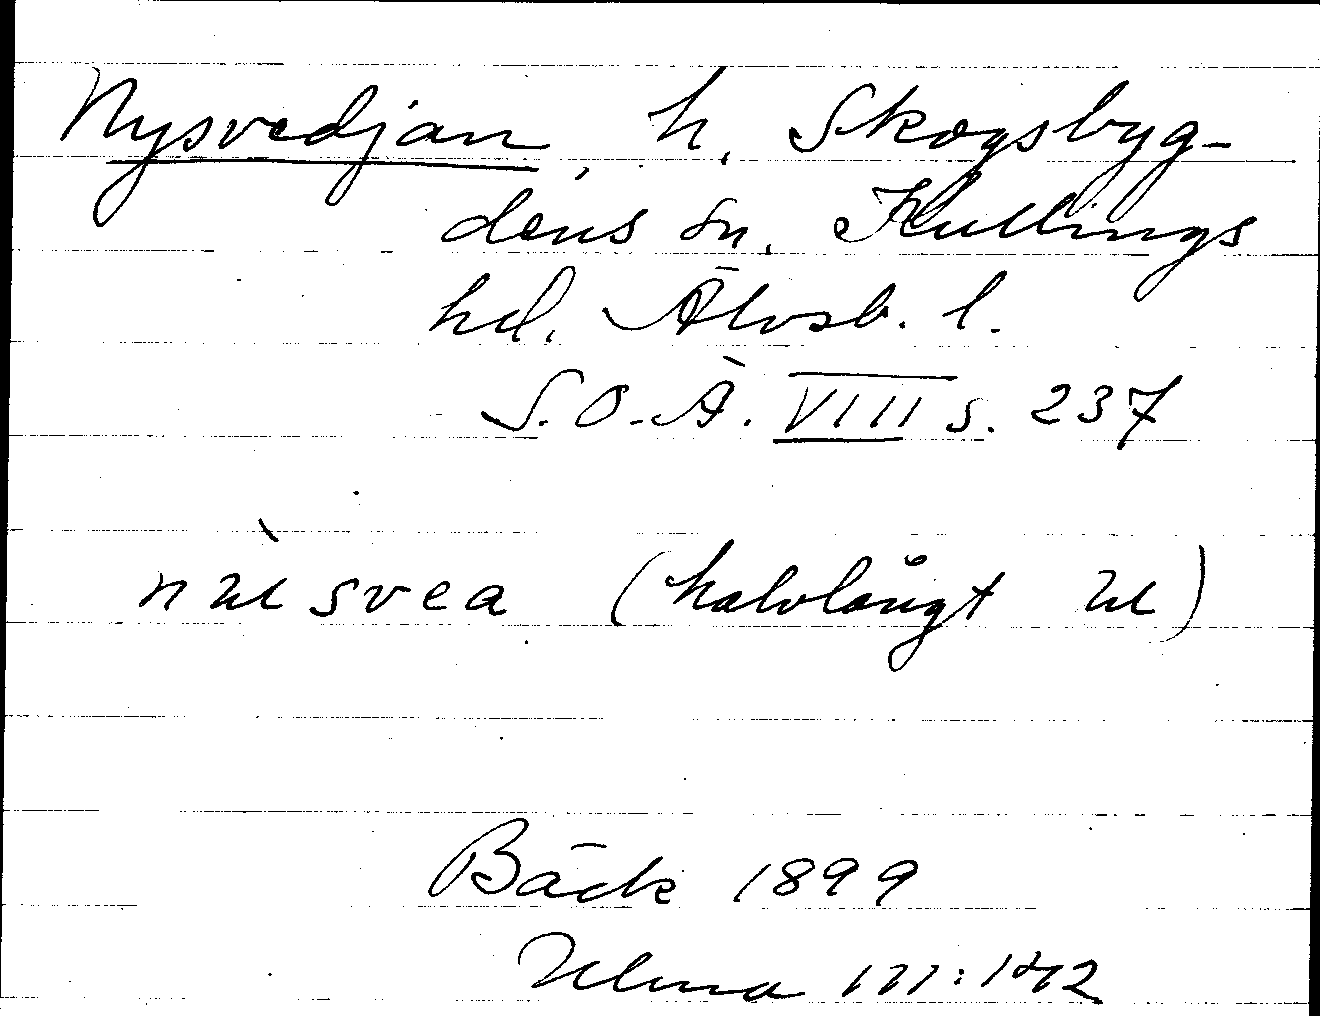 Nysvedjan, h. Skogsbyg-
dens sn. Kullings
hd. Älvsb. l.
S.O.Ä. VIII s. 237
(halvlångt
Bäck 1899
Ulma 111:142